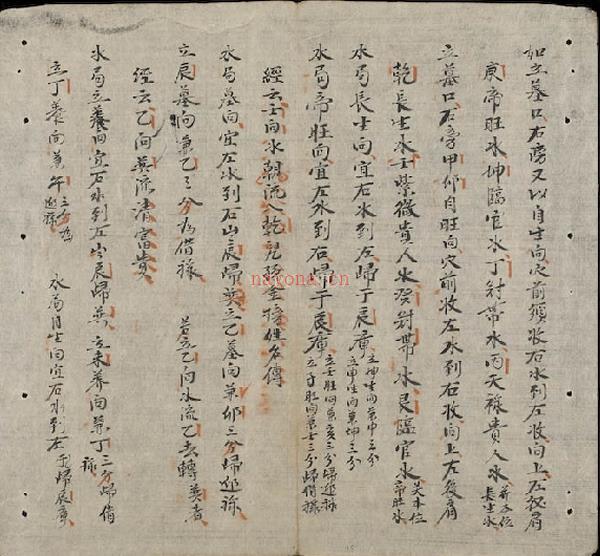 如立墓口右旁又以自生向穴前須收右水到左收向上左收肩
庚帝旺水坤臨官水丁冠帶水丙天祿貴人水
長生水
立墓口右旁甲卯自旺向穴前收左水到右收向上左肩
乾長生水壬紫微貴人水癸冠帶水艮臨官水
帝旺水
水局長生向宜右水到左歸丁辰庫
立坤生向兼申三分
立申生向兼坤三分
水局帝旺向宜左水到右歸丁辰庫
立壬旺向兼亥三分歸
立子旺向兼壬三分歸借祿
經云壬向水朝流入乾兒孫金榜姓名傳
水局墓向宜左水到右出辰歸 立乙墓向兼卯三分歸
立辰墓向兼乙三分為借祿
若立乙向水流乙去轉
經云乙向 流清富貴
水局立養向宜右水到左出辰歸 立未養向兼丁三分歸借
祿
立丁養向兼午三分為
水局自生向宜右水到左 歸辰庫
nayona.cn